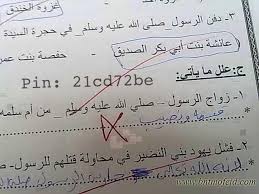 غزوة الخندق
٣- دفن الرسول صلى الله عليه وسلم في حجرة السيدة
عائشة بنت أبي بكر الصديق حفصة بنت عمر
Pin: 21cd72be
ج: علل ما يأتي:
١- زواج الرسول - صلى الله عليه وسلم - من أم سلمة
قسمة ونصيب
٢- فشل يهود بني النضير في محاولة قتلهم للرسول -
www.bntmofeid.com